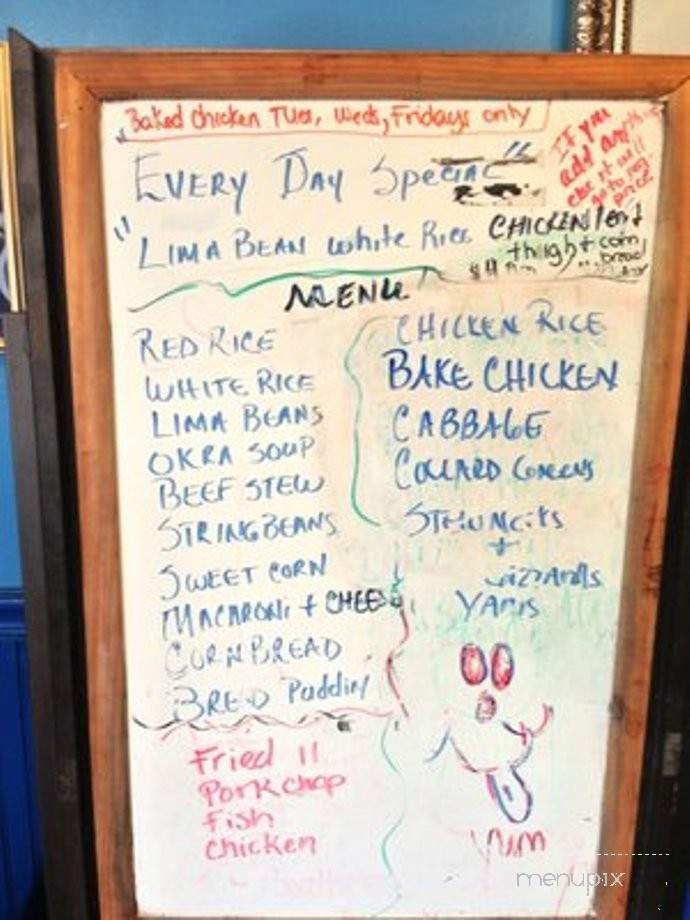 Baked Chicken Tues, Weds, Fridays only
If you
add anything
else it will
go to reg.
price
"Every Day Special"
"Lima Bean White Rice
Chicken leg +
thigh + corn
bread
Menu
Red Rice
White Rice
Lima Beans
Okra Soup
Beef Stew
String Beans
Sweet Corn
Macaroni + Chee
Corn Bread
Bread Puddin
Chicken Rice
Bake Chicken
Cabbage
Collard Greens
Stew Necks
+
Gizzards
Yams
Fried
Pork chop
Fish
Chicken
Yum
menupix